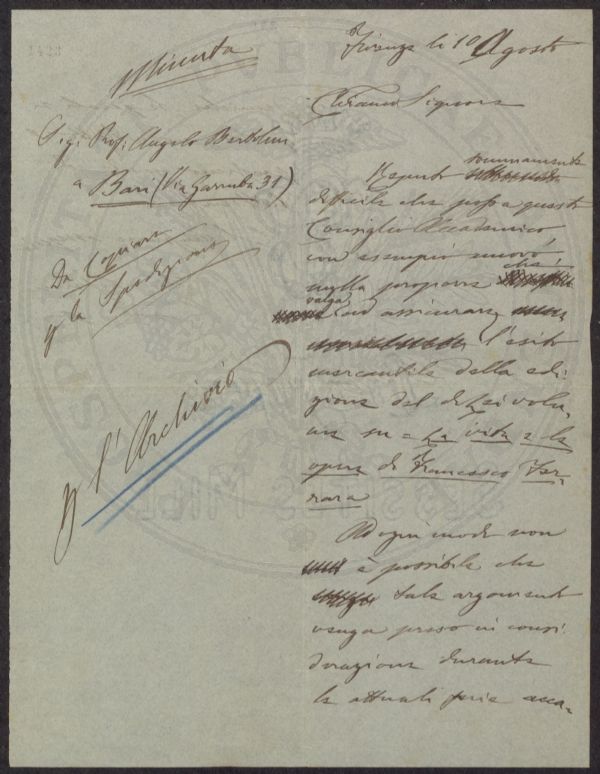 Minuta
Firenze li 10 Agosto
Chiar.mo Signore
Prof. Angelo Bertolini
a Bari (Via Garruba 31)
Da Copiare
p la Spedizione
p l'Archivio
Reputo sommamente
difficile che possa questo
Consiglio Accademico
con esempio nuovo
nulla proporre che
valga ad assicurare
l'esito
mercantile della edi
zione del di Lei volu,
me su = La vita e le
opere di Francesco Fer
rara
Ad ogni modo non
è possibile che
tale argomento
venga preso in consi
derazione durante
le attuali ferie acca=